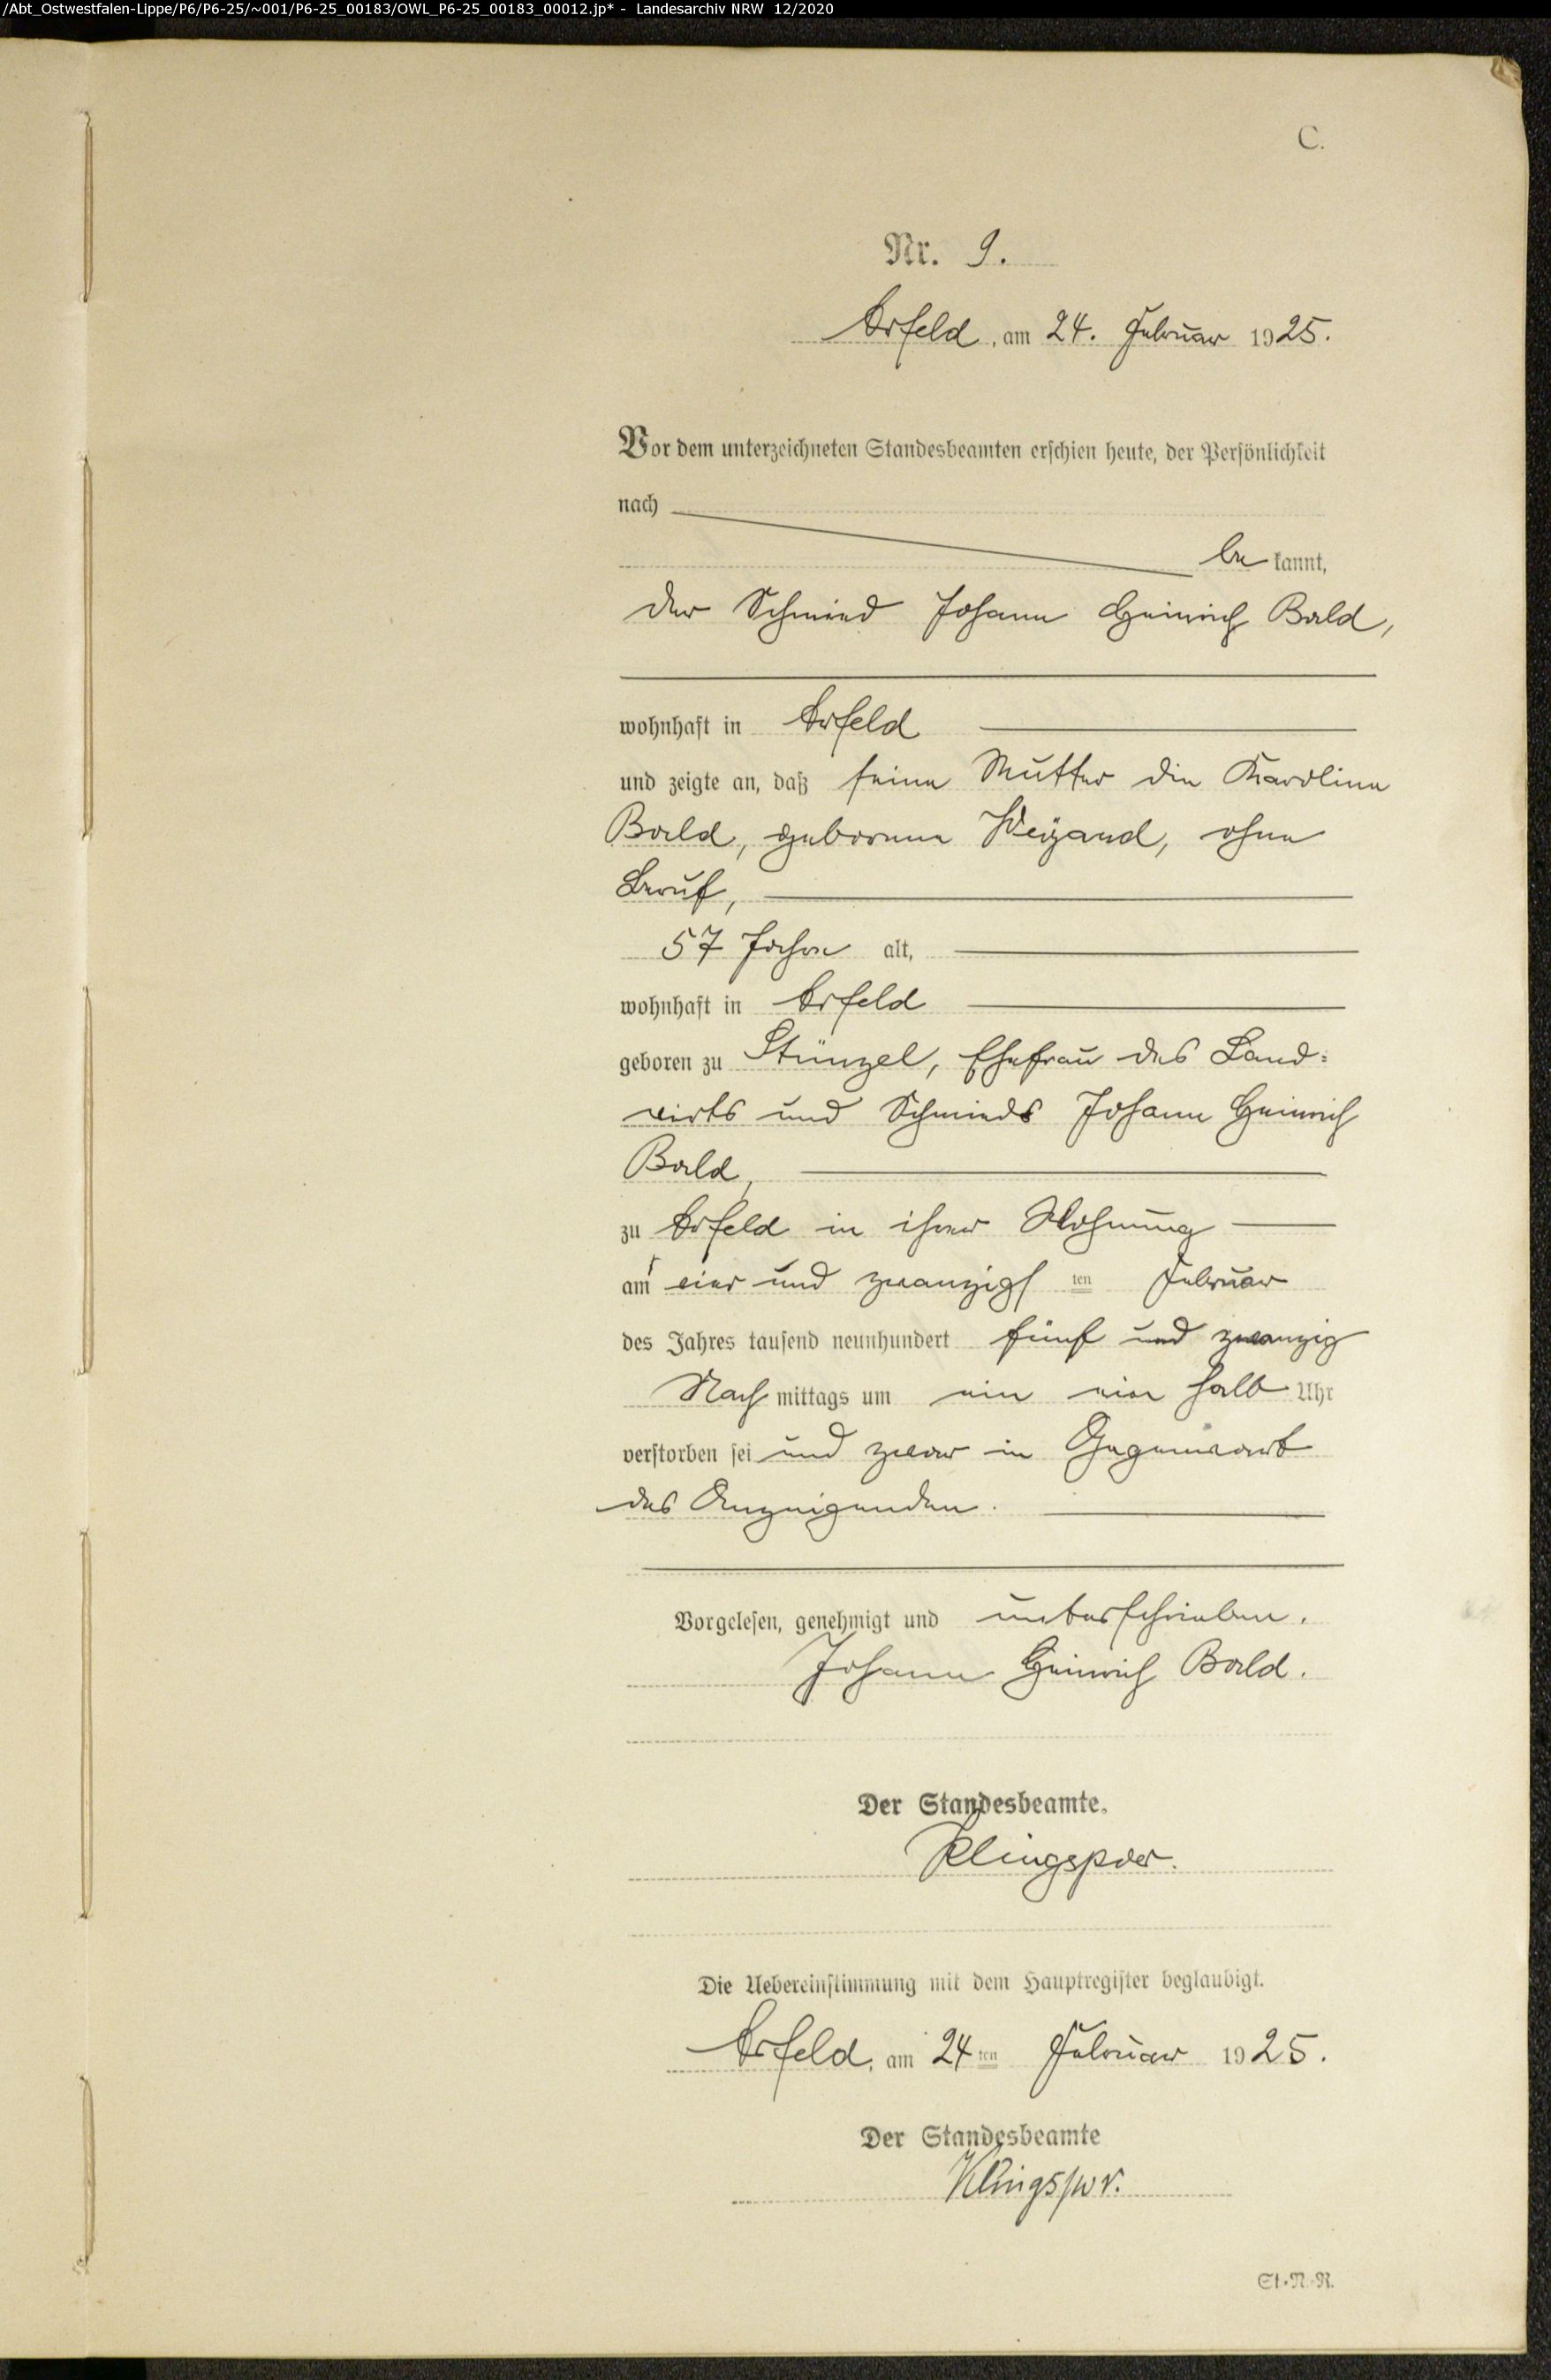 /Abt_Ostwestfalen-Lippe/P6/P6-25/~001/P6-25_00183/OWL_P6-25_00183_00012.jp* - Landesarchiv NRW 12/2020
C.
Nr. 9.
Arfeld, am 24. Februar 1925.
Vor dem unterzeichneten Standesbeamten erschien heute, der Persönlichkeit
nach
be kannt,
der Schmied Johann Heinrich Bald,
wohnhaft in Arfeld
und zeigte an, daß seine Mutter die Karoline
Bald, geborene Weigand, ohne
Beruf,
57 Jahre alt,
wohnhaft in Arfeld
geboren zu Stünzel, Ehefrau des Land-
wirts und Schmieds Johann Heinrich
Bald,
zu Arfeld in ihrer Wohnung
am vier und zwanzigs ten Februar
des Jahres tausend neunhundert fünf und zwanzig
Nach mittags um ein ein halb Uhr
verstorben sei und zwar in Gegenwart
des Anzeigenden.
Vorgelesen, genehmigt und unterschrieben.
Johann Heinrich Bald.
Der Standesbeamte.
Klingspor.
Die Uebereinstimmung mit dem Hauptregister beglaubigt.
Arfeld, am 24 ten Februar 1925.
Der Standesbeamte
Klingspor.
St.-N.-R.